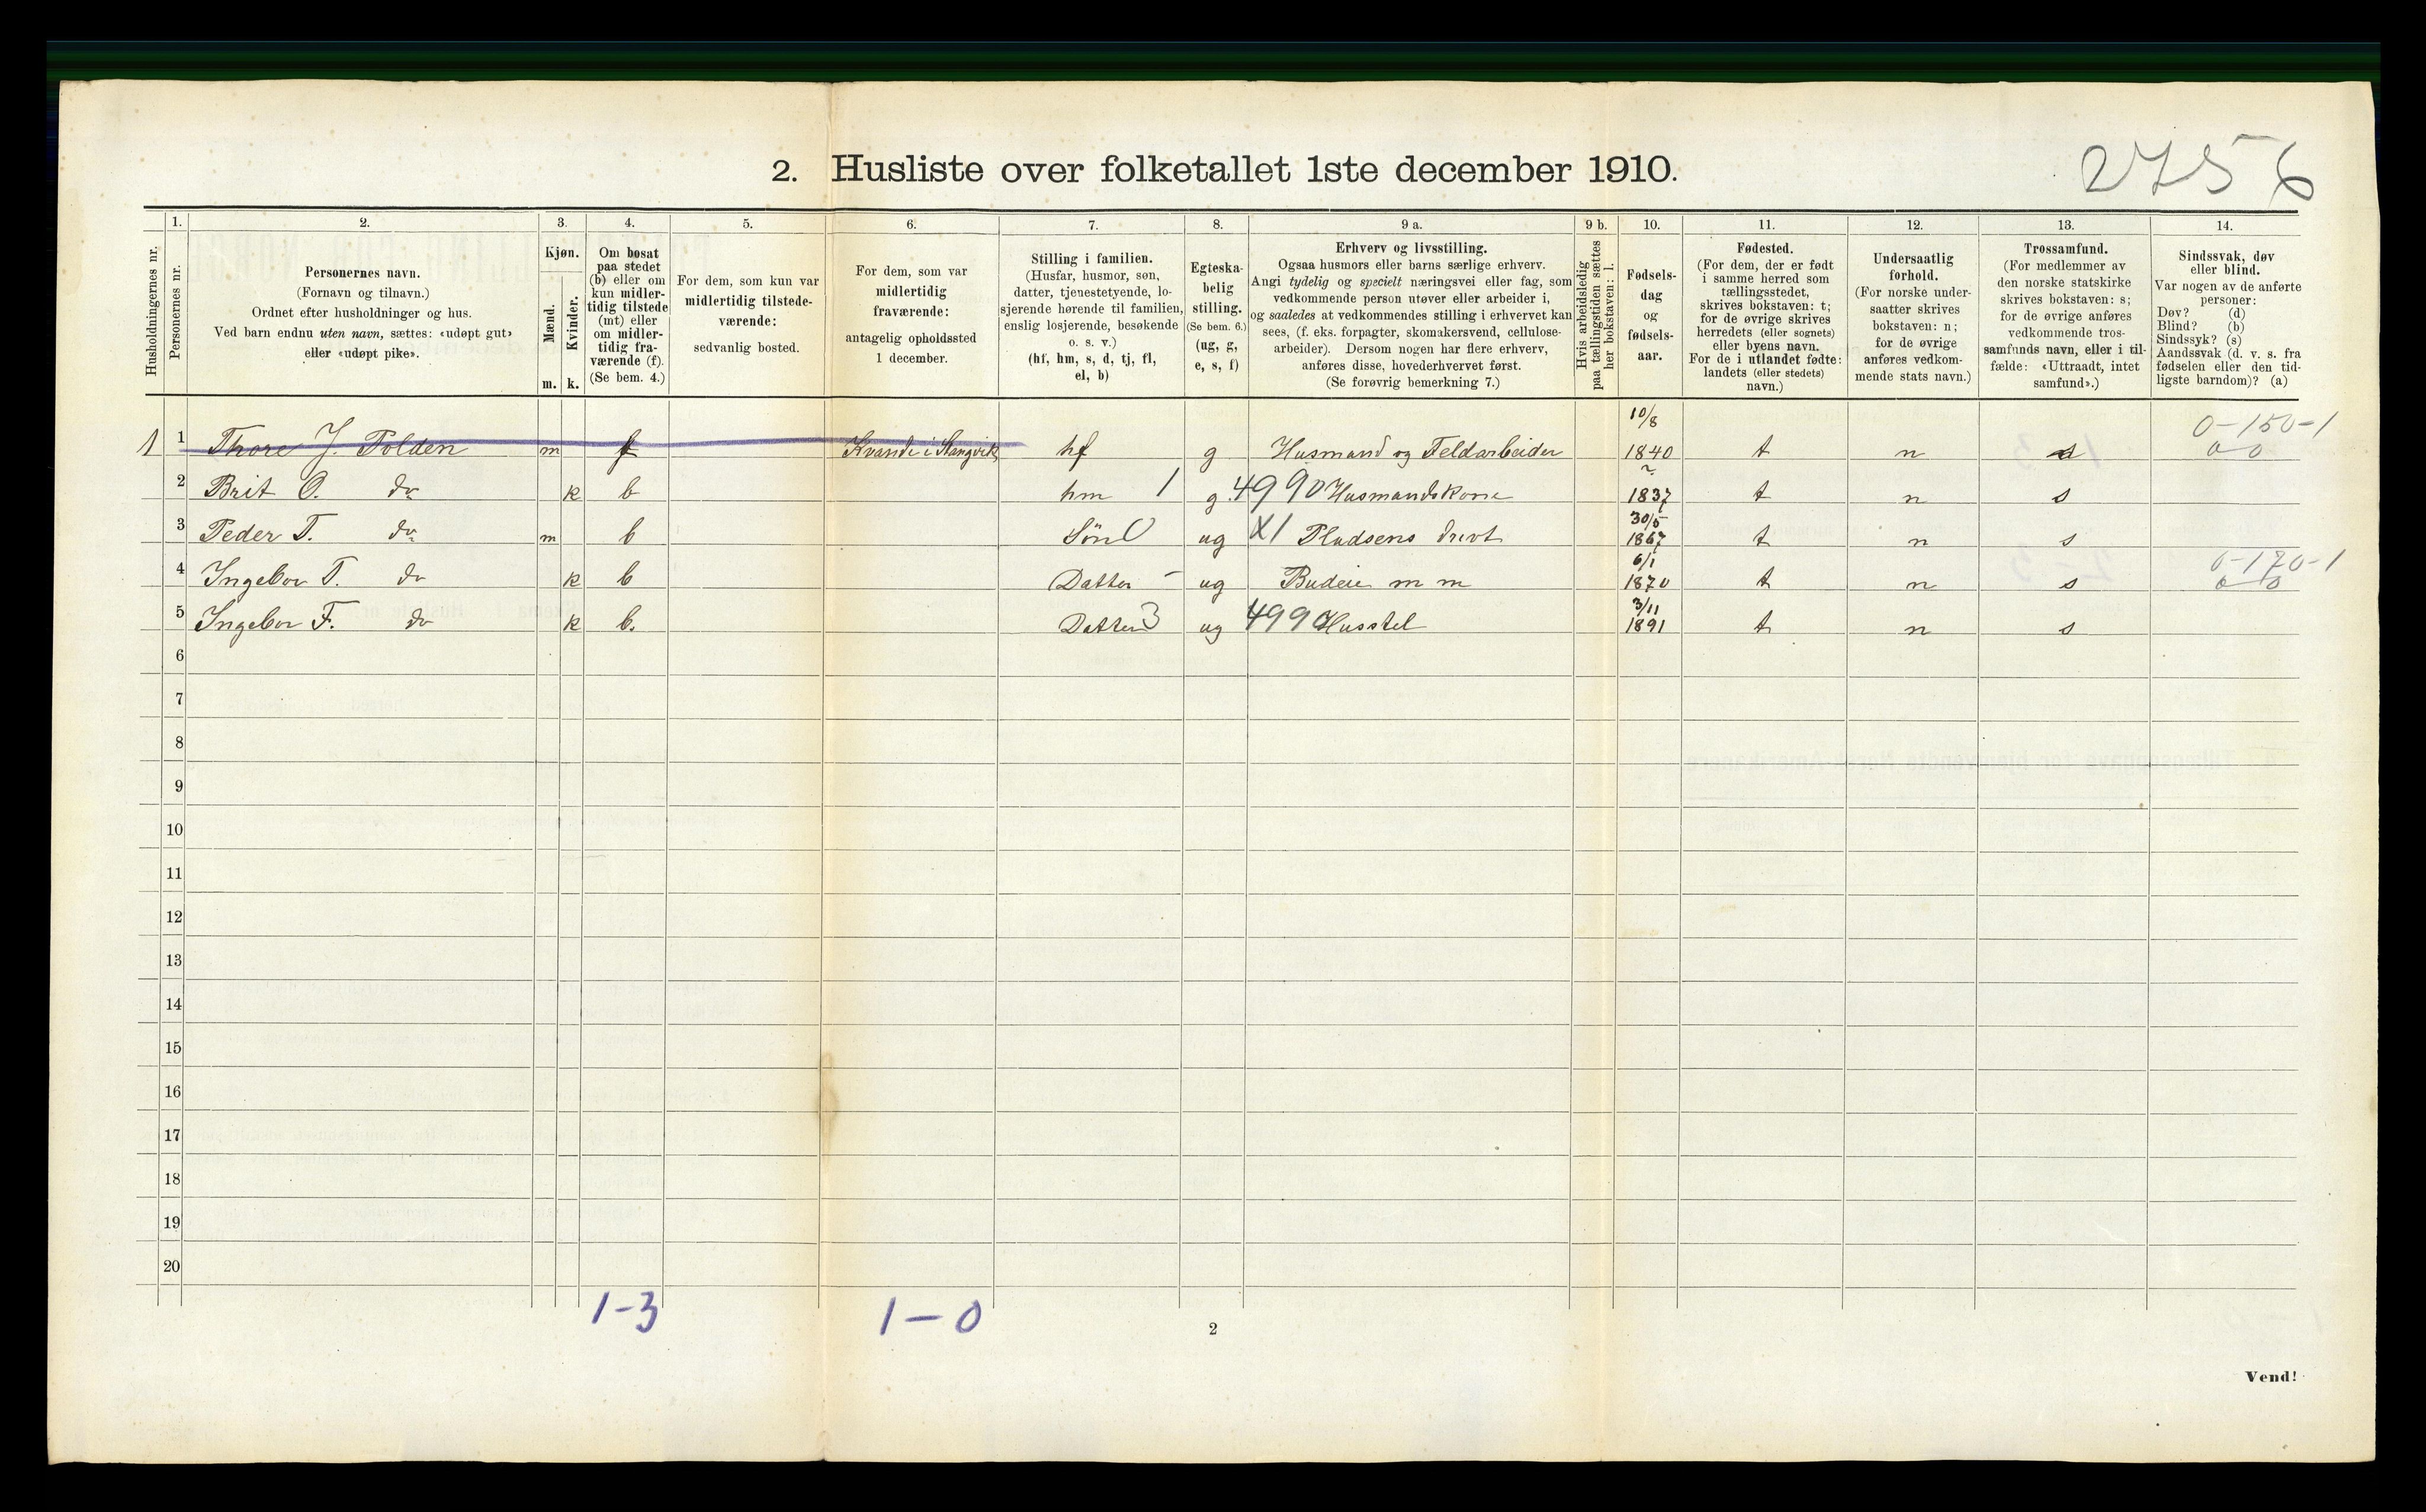 2756
2. Husliste over folketallet 1ste december 1910.
Husholdningernes nr.
1.
Personernes nr.
2.
Personernes navn.
(Fornavn og tilnavn.)
Ordnet efter husholdninger og hus.
Ved barn endnu uten navn, sættes: «udøpt gut»
eller «udøpt pike».
3.
Kjøn.
Mænd.
Kvinder.
m. k.
4.
Om bosat
paa stedet
(b) eller om
kun midler-
tidig tilstede
(mt) eller
om midler-
tidig fra-
værende (f).
(Se bem. 4.)
5.
For dem, som kun var
midlertidig tilstede-
værende:
sedvanlig bosted.
6.
For dem, som var
midlertidig
fraværende:
antagelig opholdssted
1 december.
7.
Stilling i familien.
(Husfar, husmor, søn,
datter, tjenestetyende, lo-
sjerende hørende til familien,
enslig losjerende, besøkende
o. s. v.)
(hf, hm, s, d, tj, fl,
el, b)
8.
Egteska-
belig
stilling.
(Se bem. 6.)
(ug, g,
e, s, f)
9 a.
Erhverv og livsstilling.
Ogsaa husmors eller barns særlige erhverv.
Angi tydelig og specielt næringsvei eller fag, som
vedkommende person utøver eller arbeider i,
og saaledes at vedkommendes stilling i erhvervet kan
sees, (f. eks. forpagter, skomakersvend, cellulose-
arbeider). Dersom nogen har flere erhverv,
anføres disse, hovederhvervet først.
(Se forøvrig bemerkning 7.)
9 b.
Hvis arbeidsledig
paa tællingstiden sættes
her bokstaven: l.
10.
Fødsels-
dag
og
fødsels-
aar.
11.
Fødested.
(For dem, der er født
i samme herred som
tællingsstedet,
skrives bokstaven: t;
for de øvrige skrives
herredets (eller sognets)
eller byens navn.
For de i utlandet fødte:
landets (eller stedets)
navn.)
12.
Undersaatlig
forhold.
(For norske under-
saatter skrives
bokstaven: n;
for de øvrige
anføres vedkom-
mende stats navn.)
13.
Trossamfund.
(For medlemmer av
den norske statskirke
skrives bokstaven: s;
for de øvrige anføres
vedkommende tros-
samfunds navn, eller i til-
fælde: «Uttraadt, intet
samfund».)
14.
Sindssvak, døv
eller blind.
Var nogen av de anførte
personer:
Døv? (d)
Blind? (b)
Sindssyk? (s)
Aandssvak (d. v. s. fra
fødselen eller den tid-
ligste barndom)? (a)
1 1 Thore J. Polden m f Kvande i Stangvik hf g Husmand og Feldarbeider 10/8 1840 t n s 0-150-1 0-0
2 Brit O. do k b hm 1 g 4990 Husmandskone 1837 t n s
3 Peder T. do m b Sön 0 ug X1 Pladsens drivt 30/5 1867 t n s
4 Ingebor T. do k b Datter - ug Budeie m m 6/1 1870 t n s 0-170-1 0-0
5 Ingebor F. do k b. Datter 3 ug 4990 Husstel 3/11 1891 t n s
6
7
8
9
10
11
12
13
14
15
16
17
18
19
20
1-3 1-0
2
Vend!